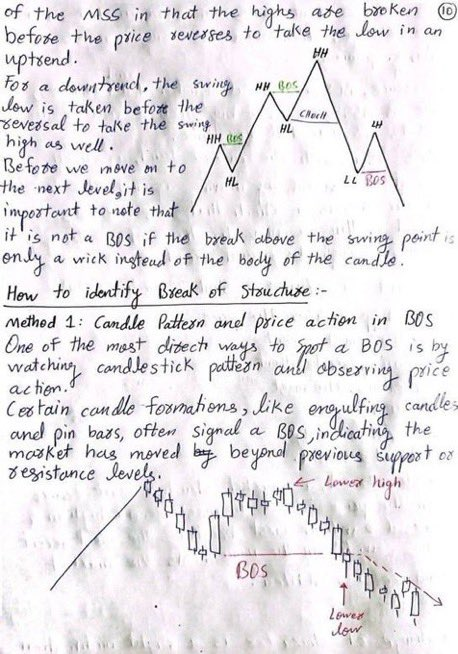 of the MSS in that the highs are broken
10
before the price reverses to take the low in an
uptrend.
For a downtrend, the swing
low is taken before the
reversal to take the swing
high as well.
Before we move on to
the next level, it is
important to note that
HH
HH BOS
HL
CHOCH
HH BOS
HL
LH
LL BOS
it is not a BOS if the break above the swing point is
only a wick instead of the body of the candle.
How to identify Break of Structure :-
Method 1: Candle Pattern and price action in BOS
One of the most direct ways to spot a BOS is by
watching candlestick pattern and observing price
action.
Certain candle formations, like engulfing candles
and pin bars, often signal a BOS, indicating the
market has moved by beyond previous support or
resistance levels.
Lower high
BOS
Lower
low